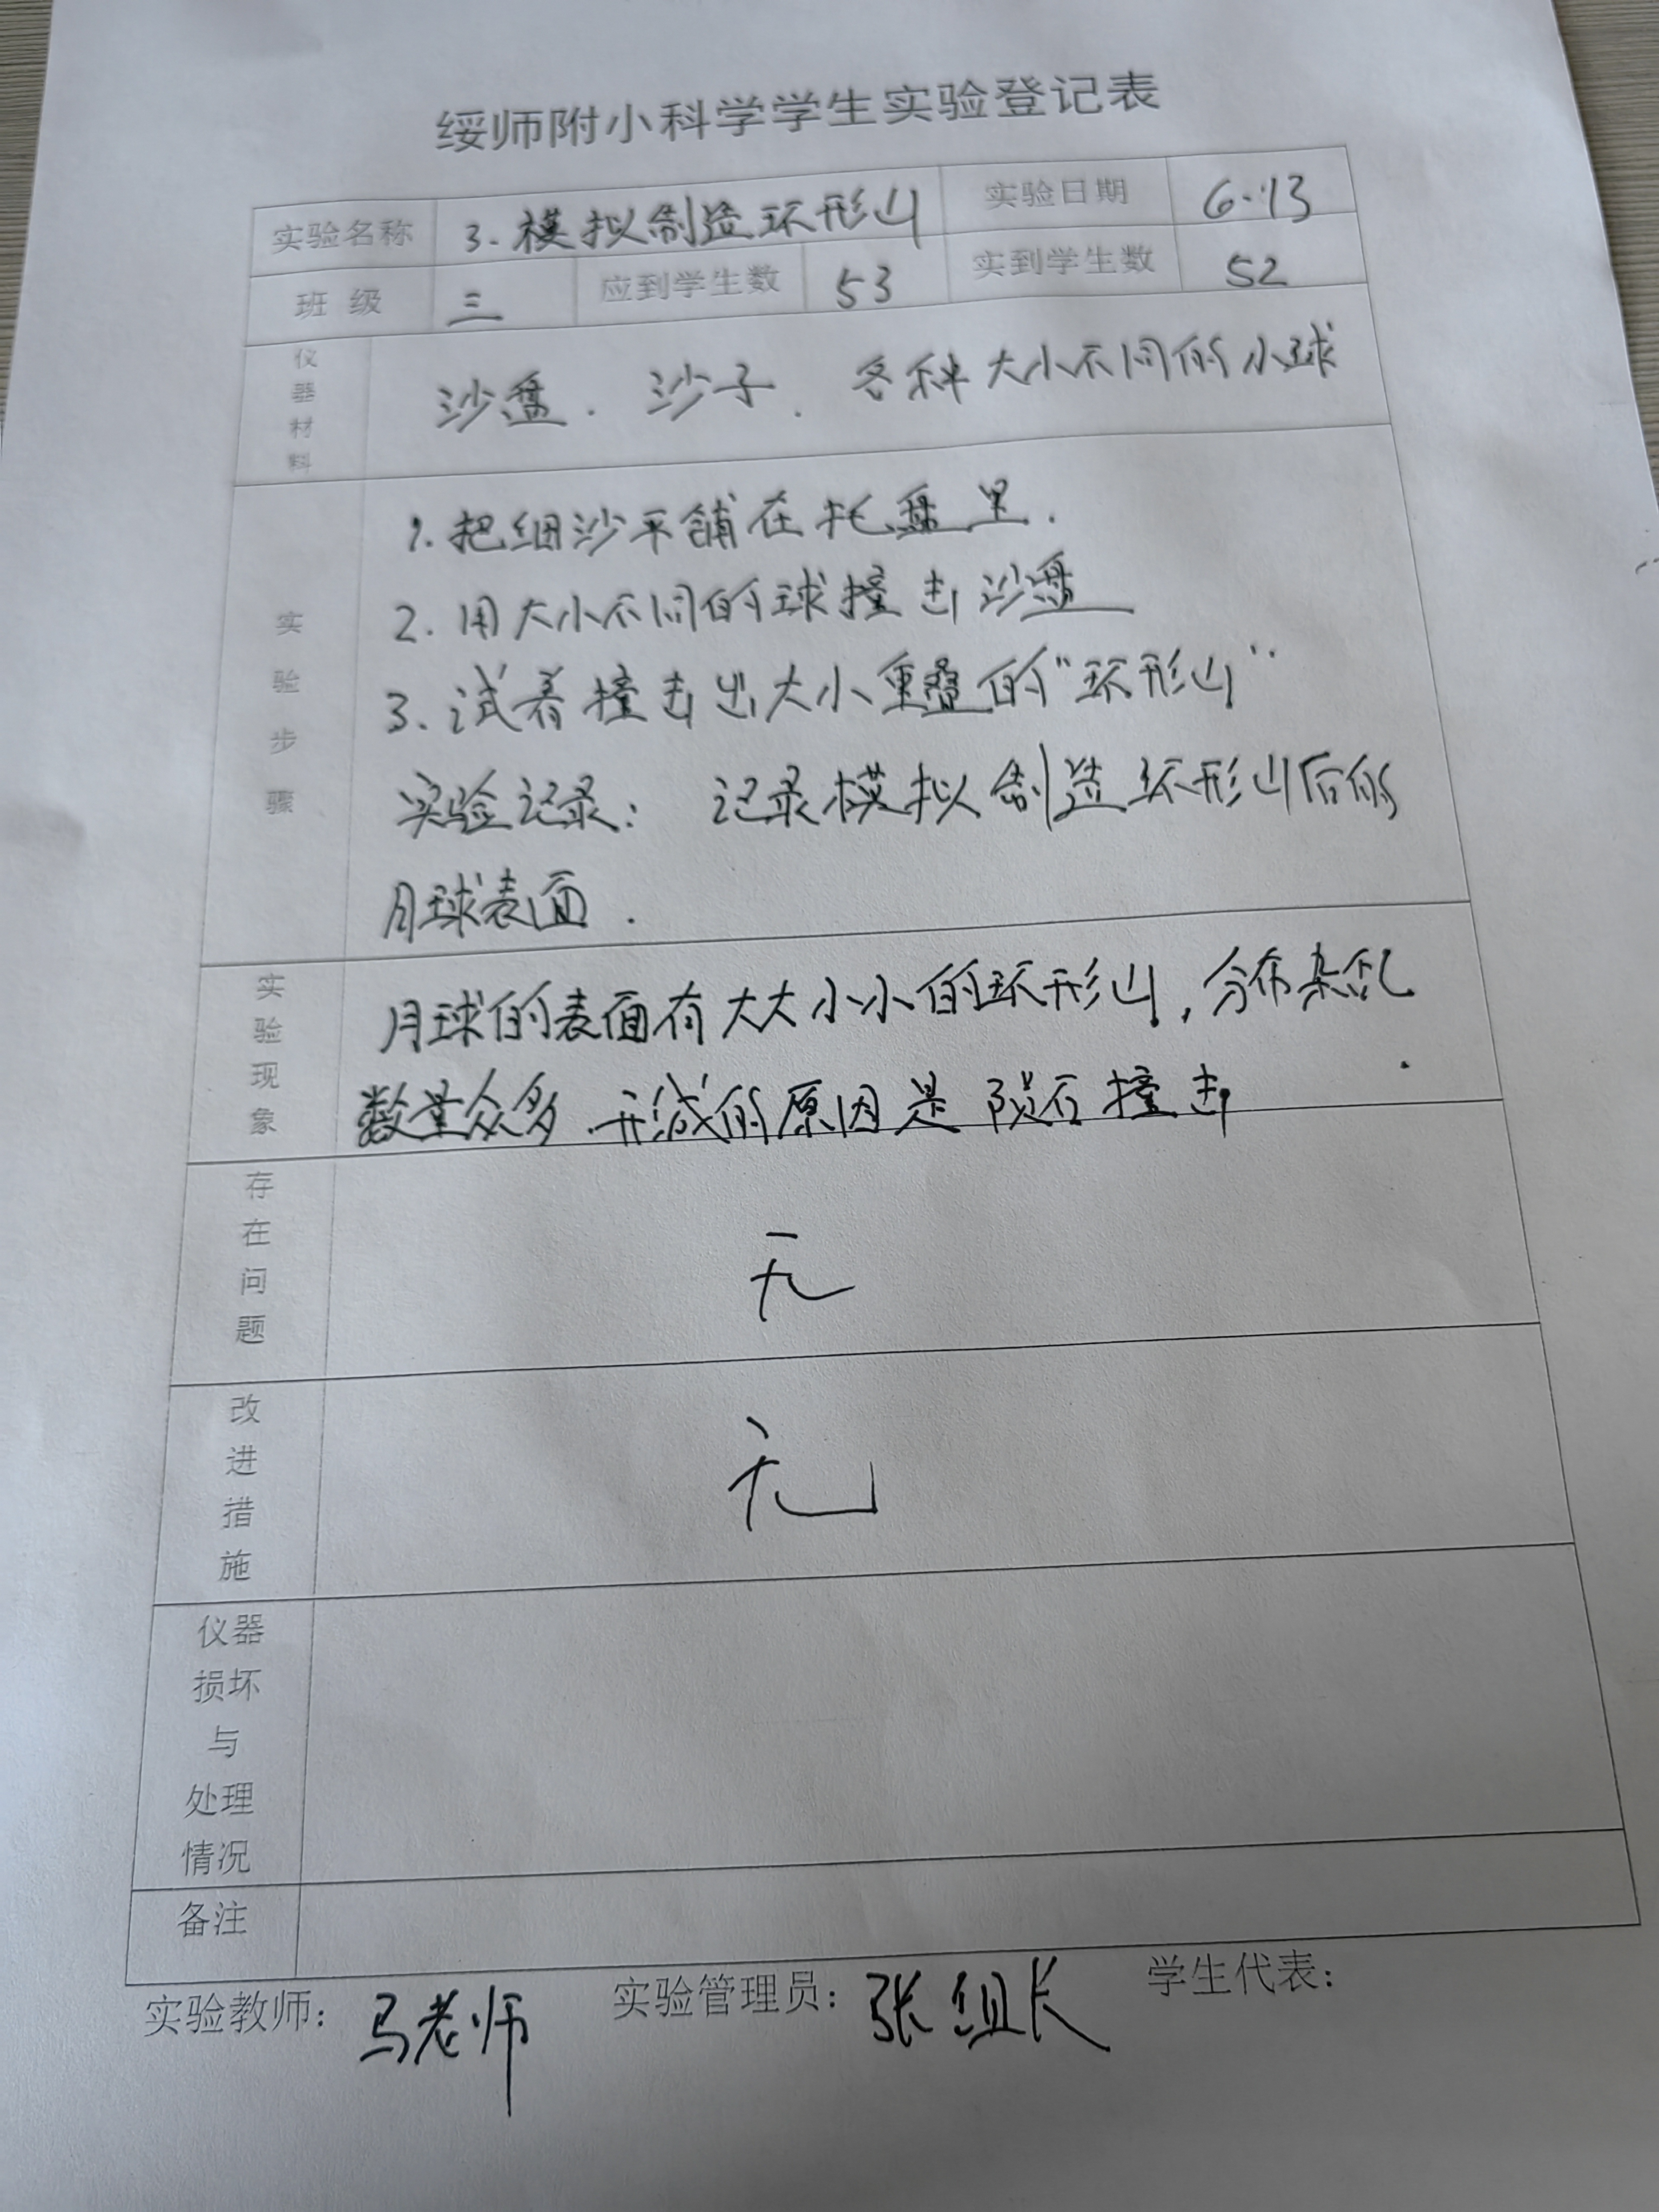 绥师附小科学学生实验登记表
实验名称 3.模拟制造环形山 实验日期 6.13
班 级 三 应到学生数 53 实到学生数 52
仪器材料 沙盘. 沙子. 各种大小不同的小球
实验步骤
1.把细沙平铺在托盘里.
2.用大小不同的球撞击沙盘
3.试着撞击出大小重叠的"环形山"
实验记录: 记录模拟制造环形山后的
月球表面.
实验现象
月球的表面有大大小小的环形山,分布杂乱.
数量众多.形成的原因是陨石撞击
存在问题 无
改进措施 无
仪器
损坏
与
处理
情况
备注
实验教师: 马老师 实验管理员: 张组长 学生代表: